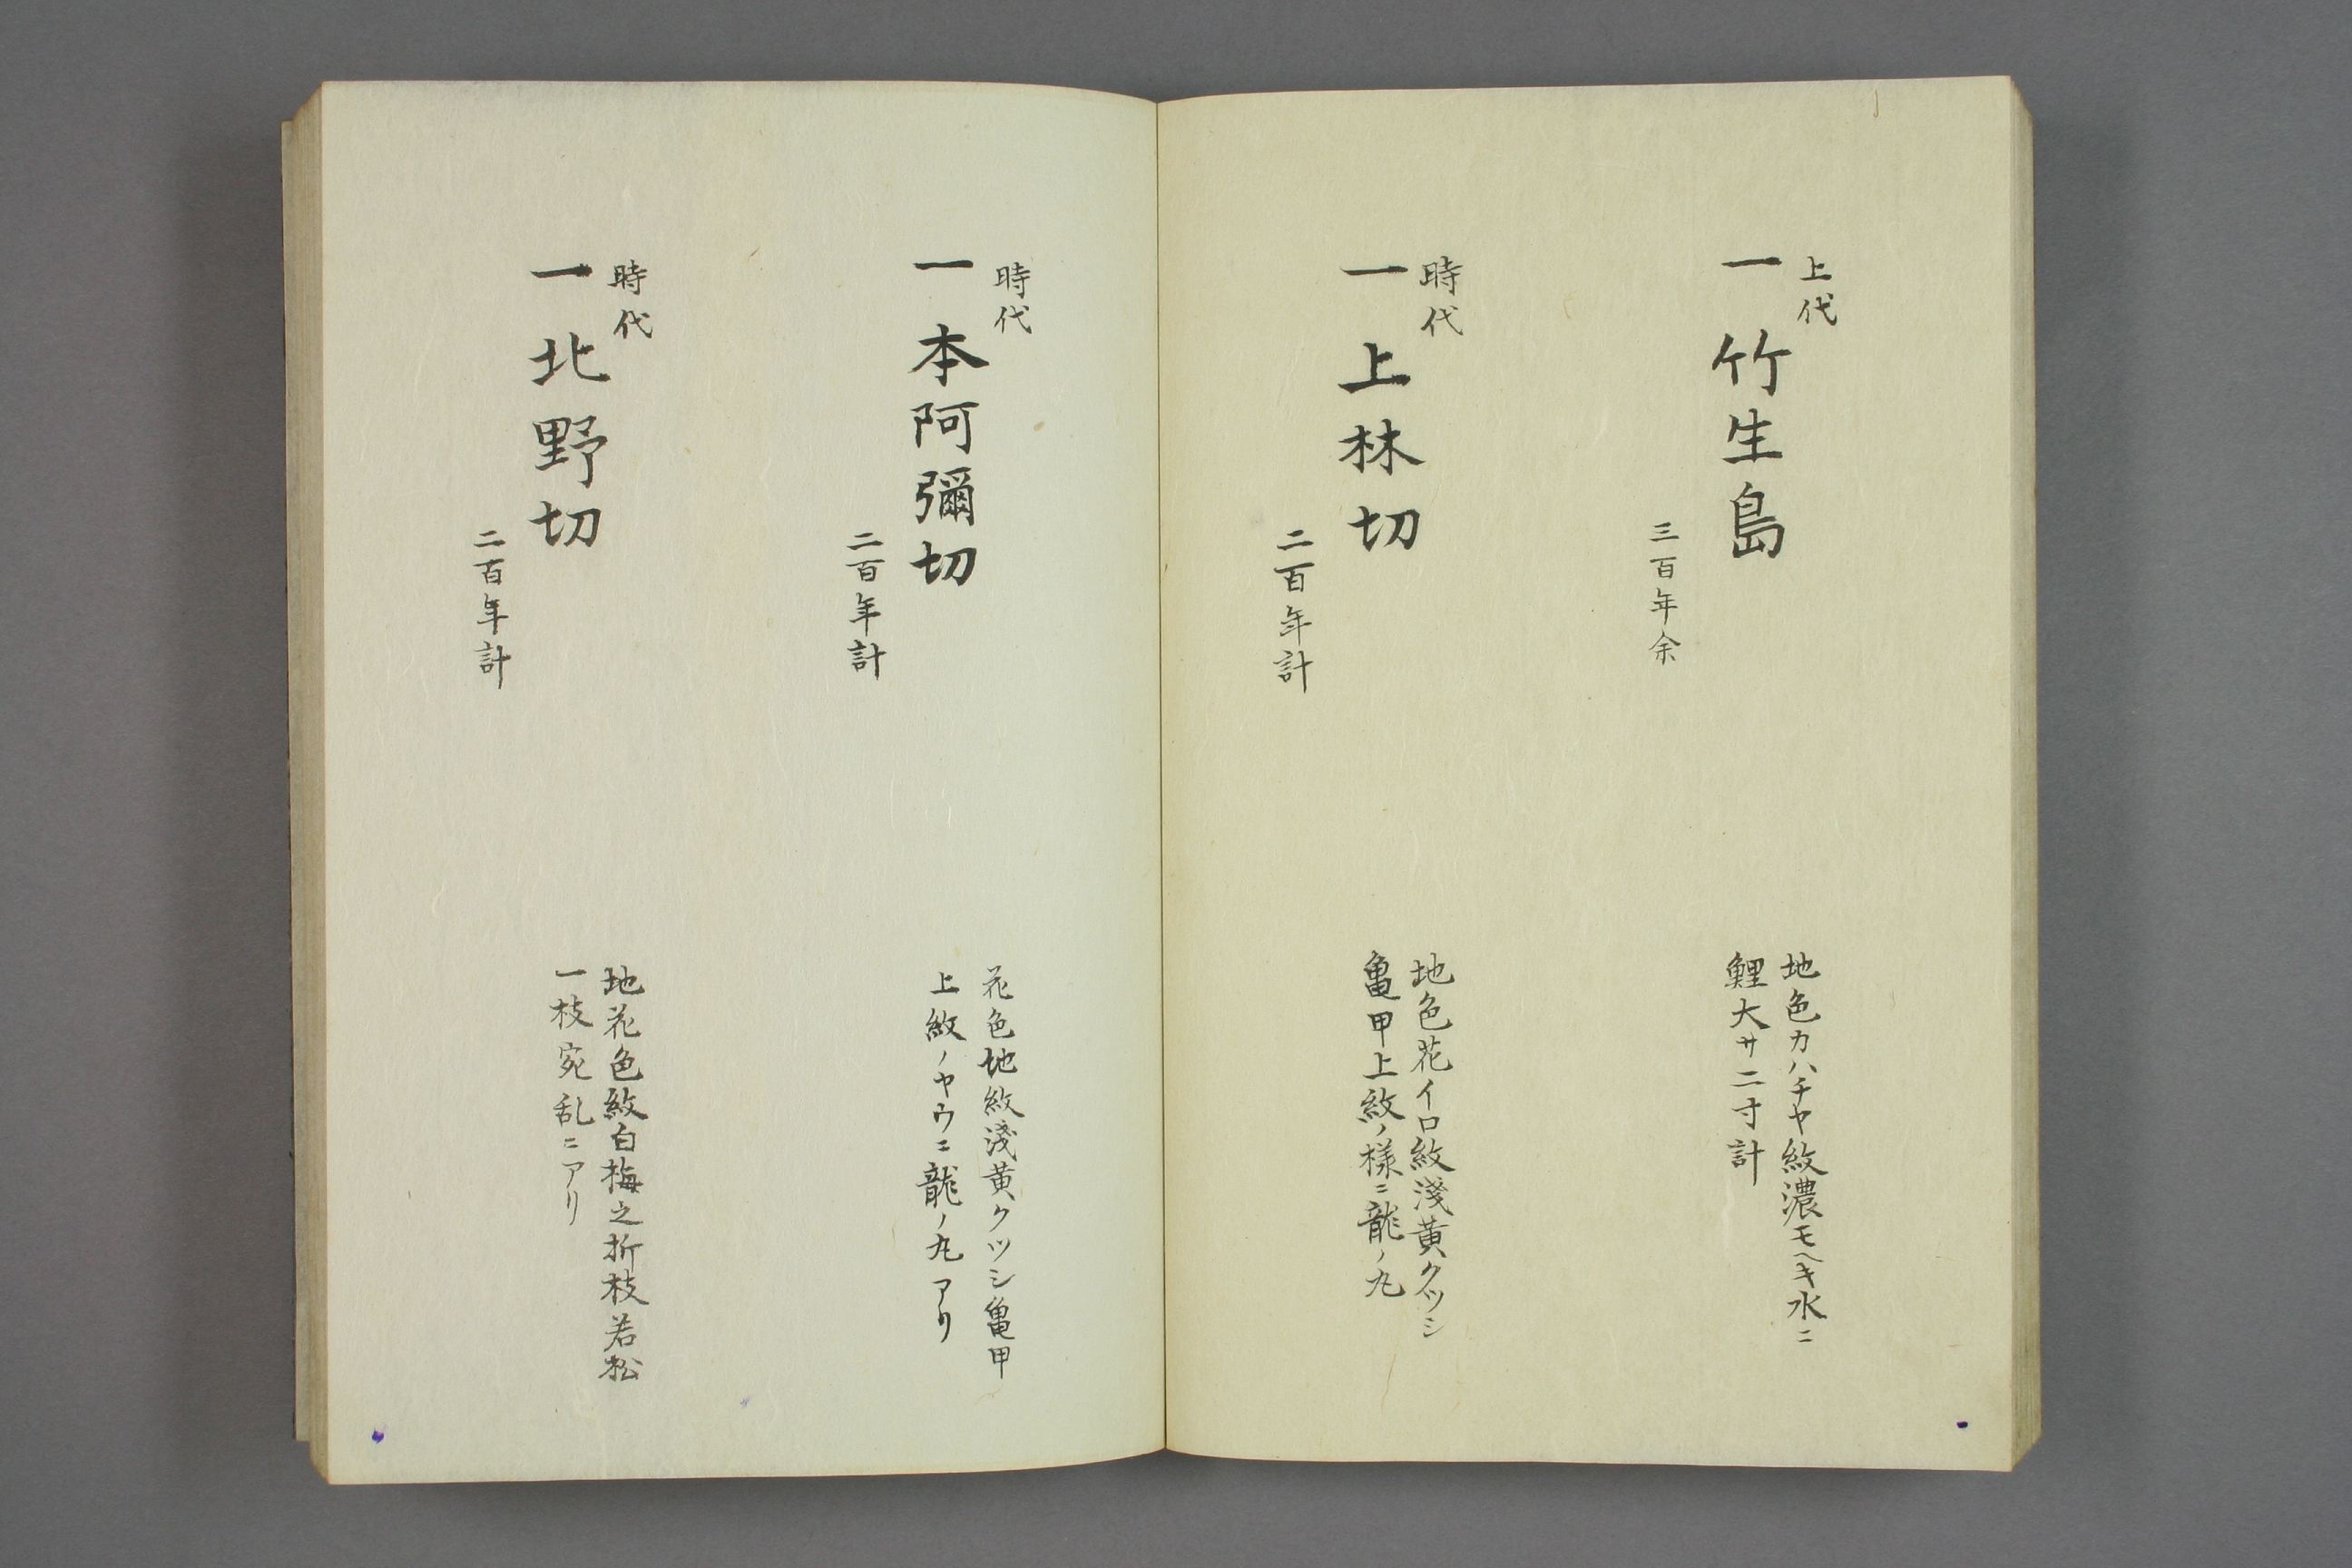 上代
一 竹生島
三百年余
地色カハチヤ紋濃モヘキ水ニ
鯉大サ二寸計
時代
一 上林切
二百年計
地色花イロ紋淺黄クツシ
亀甲上紋ノ様ニ龍ノ丸
時代
一 本阿彌切
二百年計
花色地紋淺黄クツシ亀甲
上紋ノヤウニ龍ノ丸アリ
時代
一 北野切
二百年計
地花色紋白梅之折枝若松
一枝宛乱ニアリ